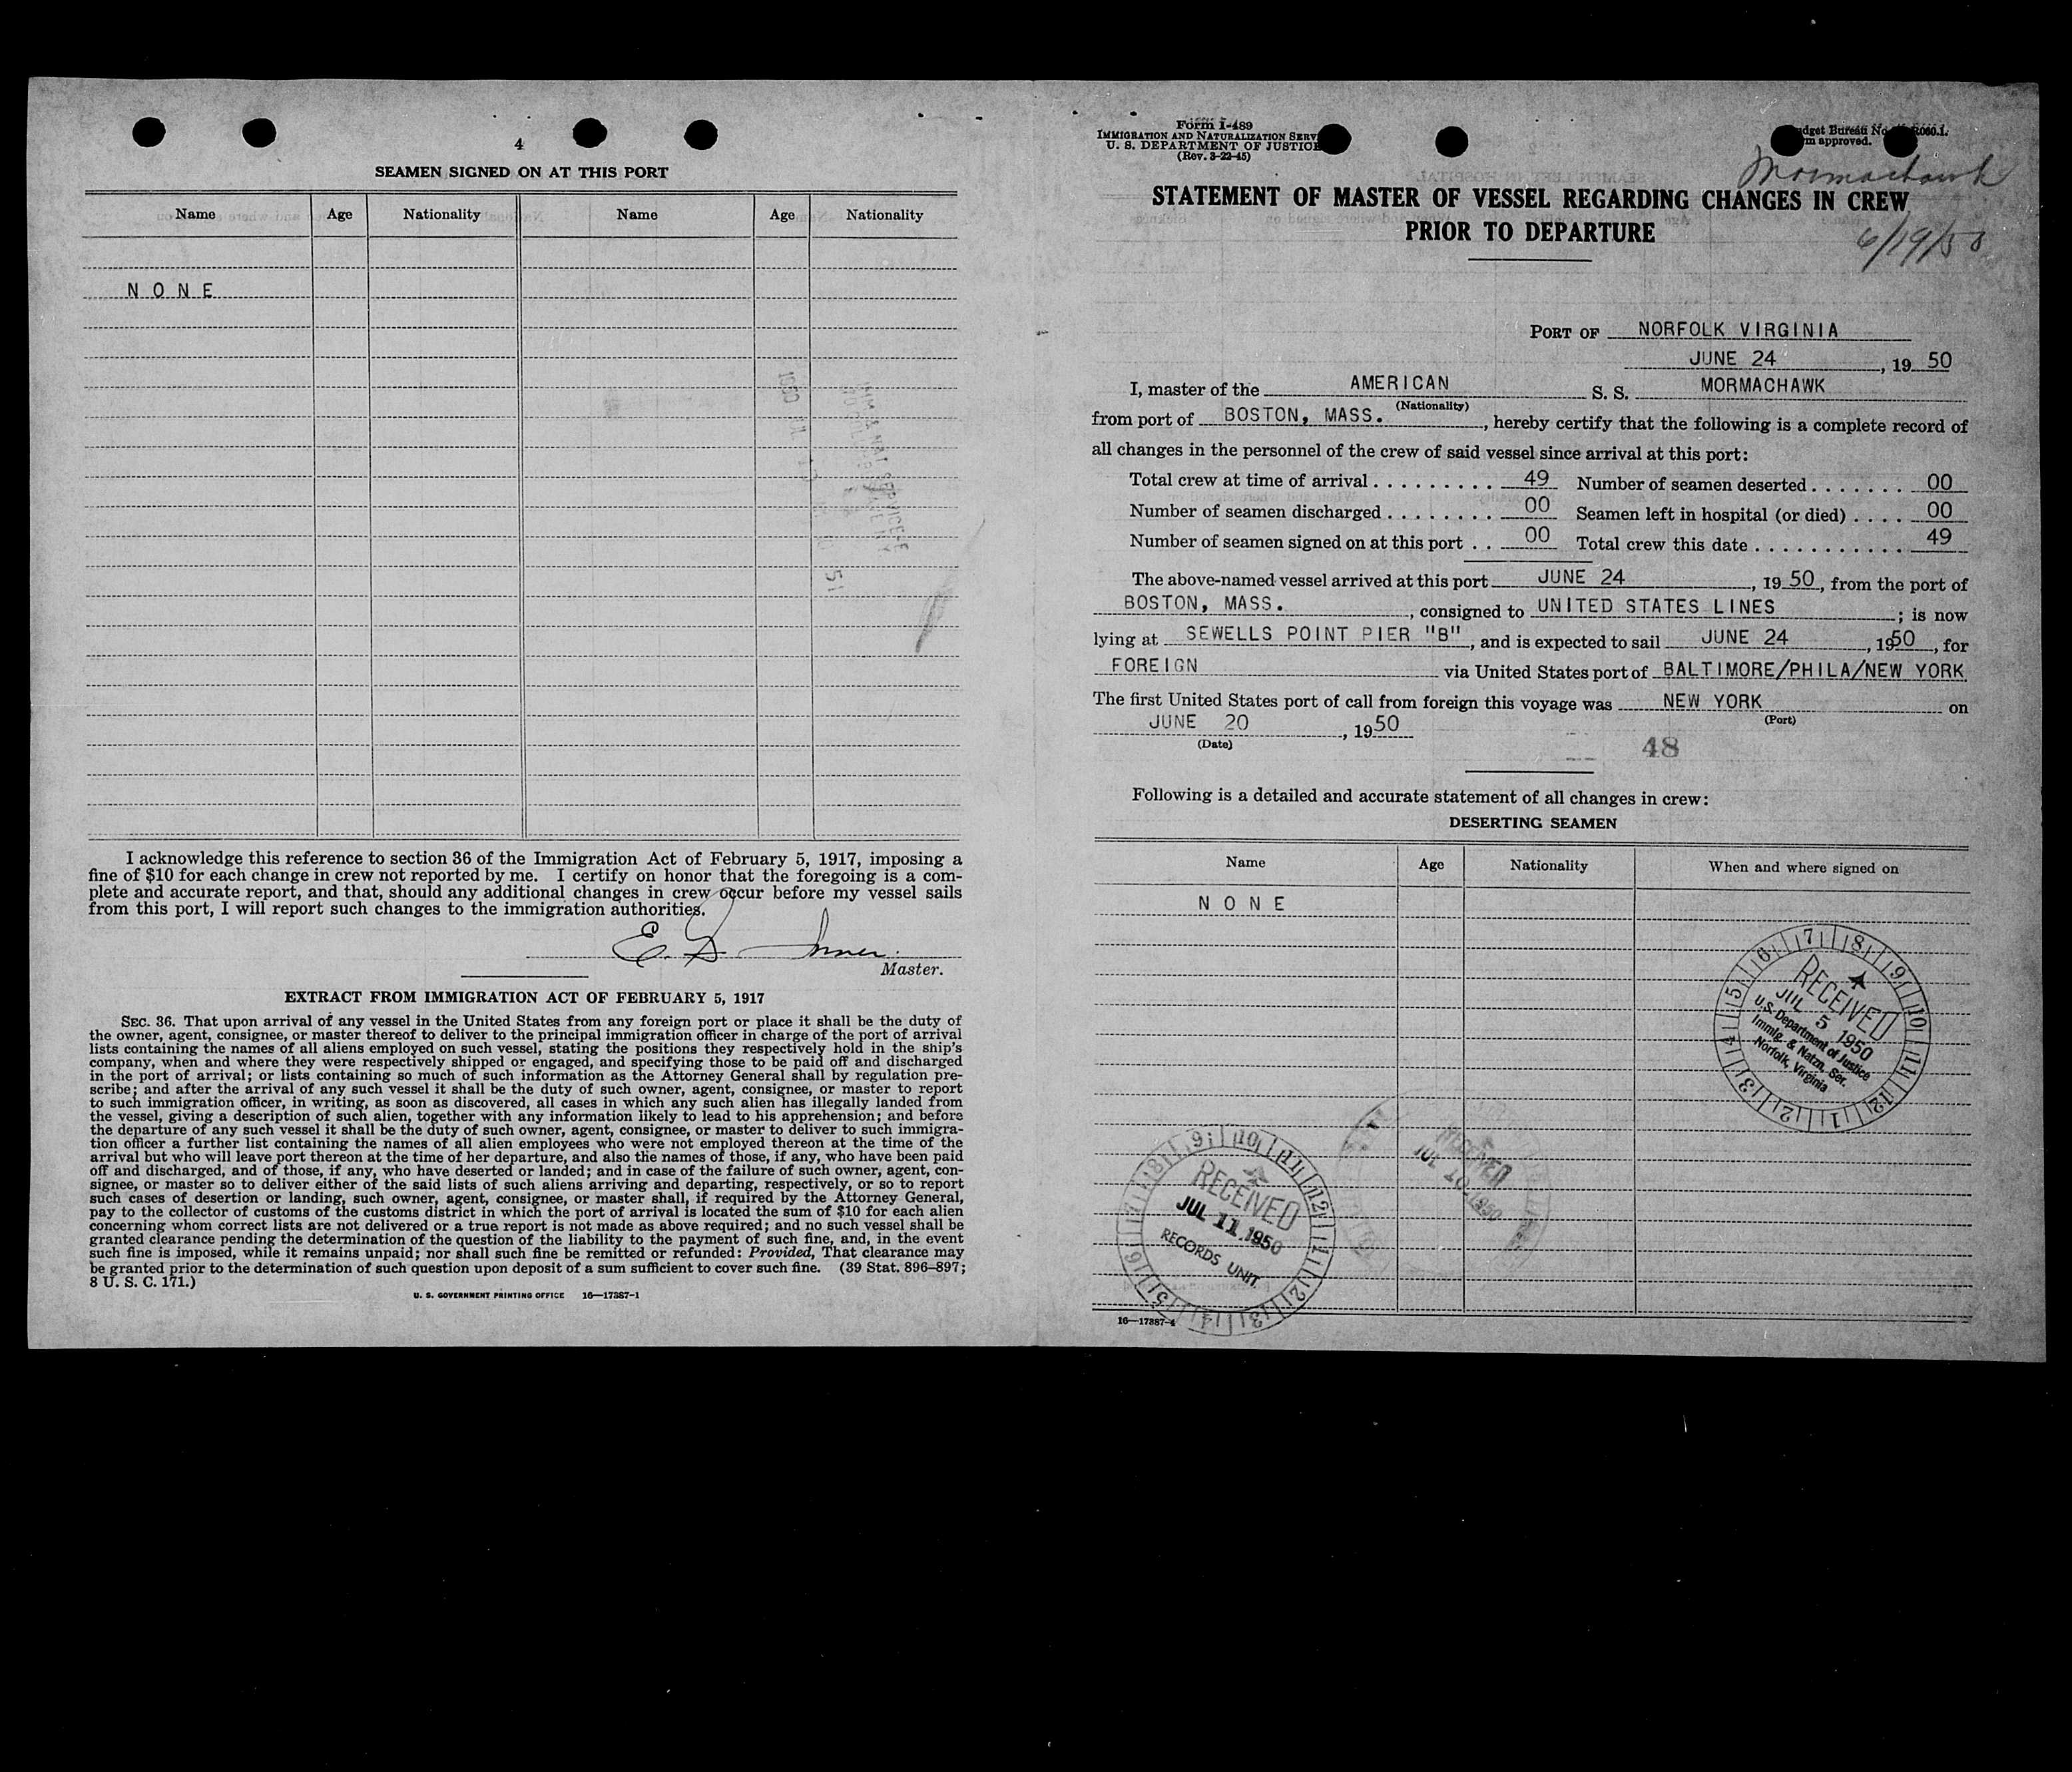 4
SEAMEN SIGNED ON AT THIS PORT
Name Age Nationality Name Age Nationality
NONE
I acknowledge this reference to section 36 of the Immigration Act of February 5, 1917, imposing a
fine of $10 for each change in crew not reported by me. I certify on honor that the foregoing is a com-
plete and accurate report, and that, should any additional changes in crew occur before my vessel sails
from this port, I will report such changes to the immigration authorities.
Master.
EXTRACT FROM IMMIGRATION ACT OF FEBRUARY 5, 1917
SEC. 36. That upon arrival of any vessel in the United States from any foreign port or place it shall be the duty of
the owner, agent, consignee, or master thereof to deliver to the principal immigration officer in charge of the port of arrival
lists containing the names of all aliens employed on such vessel, stating the positions they respectively hold in the ship's
company, when and where they were respectively shipped or engaged, and specifying those to be paid off and discharged
in the port of arrival; or lists containing so much of such information as the Attorney General shall by regulation pre-
scribe; and after the arrival of any such vessel it shall be the duty of such owner, agent, consignee, or master to report
to such immigration officer, in writing, as soon as discovered, all cases in which any such alien has illegally landed from
the vessel, giving a description of such alien, together with any information likely to lead to his apprehension; and before
the departure of any such vessel it shall be the duty of such owner, agent, consignee, or master to deliver to such immigra-
tion officer a further list containing the names of all alien employees who were not employed thereon at the time of the
arrival but who will leave port thereon at the time of her departure, and also the names of those, if any, who have been paid
off and discharged, and of those, if any, who have deserted or landed; and in case of the failure of such owner, agent, con-
signee, or master so to deliver either of the said lists of such aliens arriving and departing, respectively, or so to report
such cases of desertion or landing, such owner, agent, consignee, or master shall, if required by the Attorney General,
pay to the collector of customs of the customs district in which the port of arrival is located the sum of $10 for each alien
concerning whom correct lists are not delivered or a true report is not made as above required; and no such vessel shall be
granted clearance pending the determination of the question of the liability to the payment of such fine, and, in the event
such fine is imposed, while it remains unpaid; nor shall such fine be remitted or refunded: Provided, That clearance may
be granted prior to the determination of such question upon deposit of a sum sufficient to cover such fine. (39 Stat. 896–897;
8 U. S. C. 171.)
U. S. GOVERNMENT PRINTING OFFICE 16—17387-1
Form I-489
IMMIGRATION AND NATURALIZATION SERV
U. S. DEPARTMENT OF JUSTICE
(Rev. 3-22-45)
dget Bureau No. R060.1.
m approved.
Mormachawk
STATEMENT OF MASTER OF VESSEL REGARDING CHANGES IN CREW
PRIOR TO DEPARTURE
6/19/50
PORT OF NORFOLK VIRGINIA
JUNE 24, 1950
I, master of the AMERICAN S. S. MORMACHAWK
(Nationality)
from port of BOSTON, MASS., hereby certify that the following is a complete record of
all changes in the personnel of the crew of said vessel since arrival at this port:
Total crew at time of arrival 49 Number of seamen deserted 00
Number of seamen discharged 00 Seamen left in hospital (or died) 00
Number of seamen signed on at this port 00 Total crew this date 49
The above-named vessel arrived at this port JUNE 24, 1950, from the port of
BOSTON, MASS., consigned to UNITED STATES LINES; is now
lying at SEWELLS POINT PIER "B", and is expected to sail JUNE 24, 1950, for
FOREIGN via United States port of BALTIMORE/PHILA/NEW YORK
The first United States port of call from foreign this voyage was NEW YORK on
(Port)
JUNE 20, 1950
(Date)
48
Following is a detailed and accurate statement of all changes in crew:
DESERTING SEAMEN
Name Age Nationality When and where signed on
NONE
RECEIVED
JUL 5 1950
U.S. Department of Justice
Immig. & Natzn. Ser.
Norfolk, Virginia
RECEIVED
JUL 10 1950
RECEIVED
JUL 11 1950
RECORDS UNIT
16—17387-4